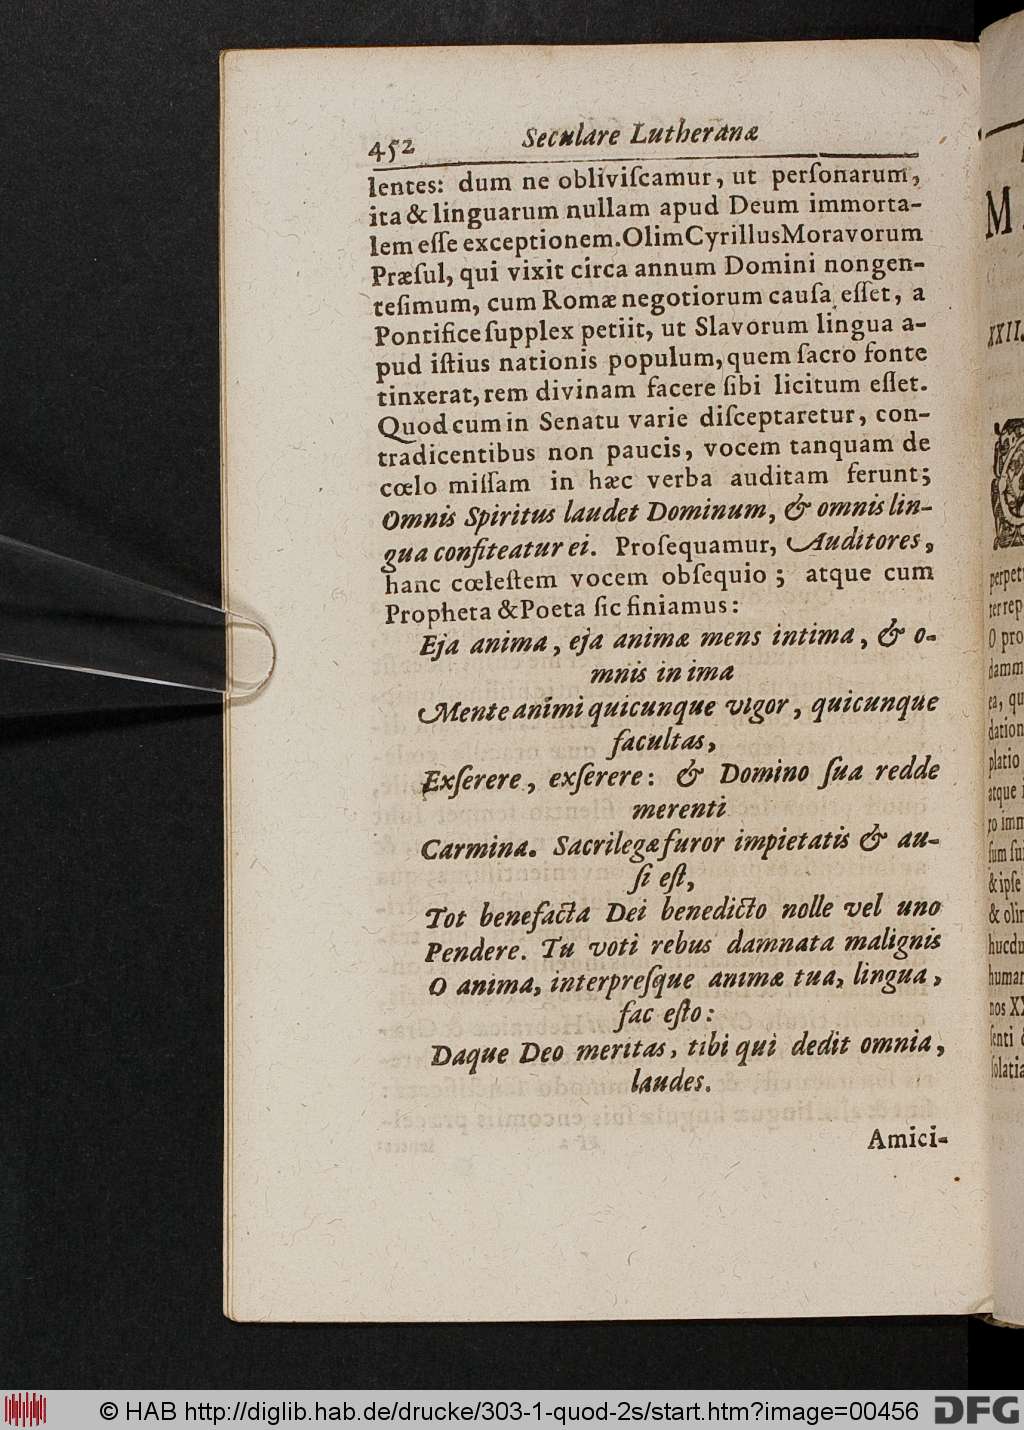 452 Seculare Lutheranæ
lentes: dum ne obliviſcamur, ut perſonarum,
ita & linguarum nullam apud Deum immorta-
lem eſſe exceptionem. Olim Cyrillus Moravorum
Præſul, qui vixit circa annum Domini nongen-
teſimum, cum Romæ negotiorum cauſa eſſet, a
Pontifice ſupplex petiit, ut Slavorum lingua a-
pud iſtius nationis populum, quem ſacro fonte
tinxerat, rem divinam facere ſibi licitum eſſet.
Quod cum in Senatu varie diſceptaretur, con-
tradicentibus non paucis, vocem tanquam de
cœlo miſſam in hæc verba auditam ferunt;
Omnis Spiritus laudet Dominum, & omnis lin-
gua confiteatur ei. Proſequamur, Auditores,
hanc cœleſtem vocem obſequio; atque cum
Propheta & Poeta ſic finiamus:
Eja anima, eja animæ mens intima, & o-
mnis in ima
Mente animi quicunque vigor, quicunque
facultas,
Exſerere, exſerere: & Domino ſua redde
merenti
Carmina. Sacrilegæ furor impietatis & au-
ſi eſt,
Tot benefacta Dei benedicto nolle vel uno
Pendere. Tu voti rebus damnata malignis
O anima, interpreſque animæ tua, lingua,
fac eſto:
Daque Deo meritas, tibi qui dedit omnia,
laudes.
Amici-
M
XXII.
perpet
ter rep
O pro
damm
ea, qu
dation
platio
atque
ro imm
ſum ſui
& ipſe
& olim
hucdu
human
nos XX
ſenti
ſolatia
© HAB http://diglib.hab.de/drucke/303-1-quod-2s/start.htm?image=00456
DFG